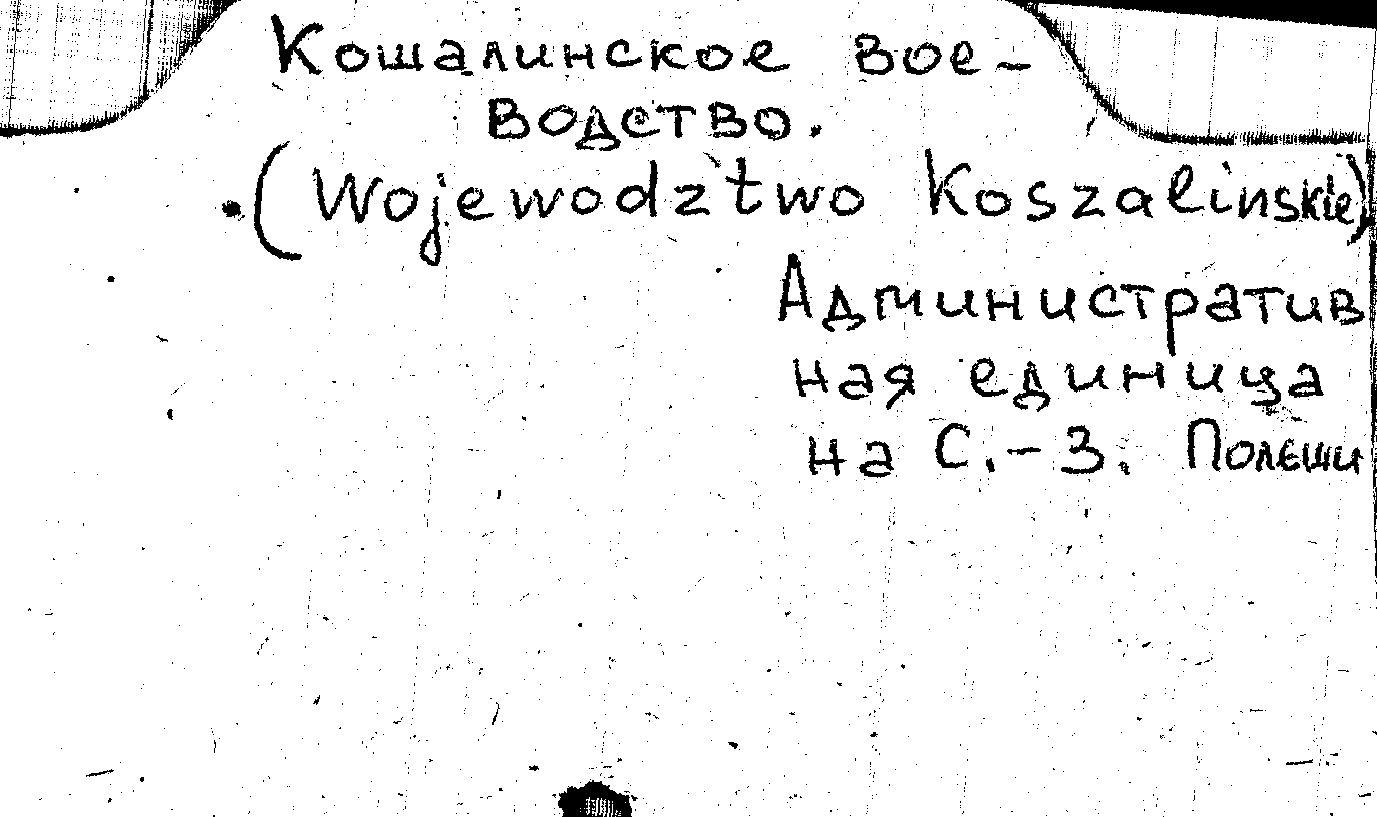 Кошалинское вое-
водство.
(Wojewodztwo Koszalinskie)
Административ
ная единица
на С.-З. Полеши